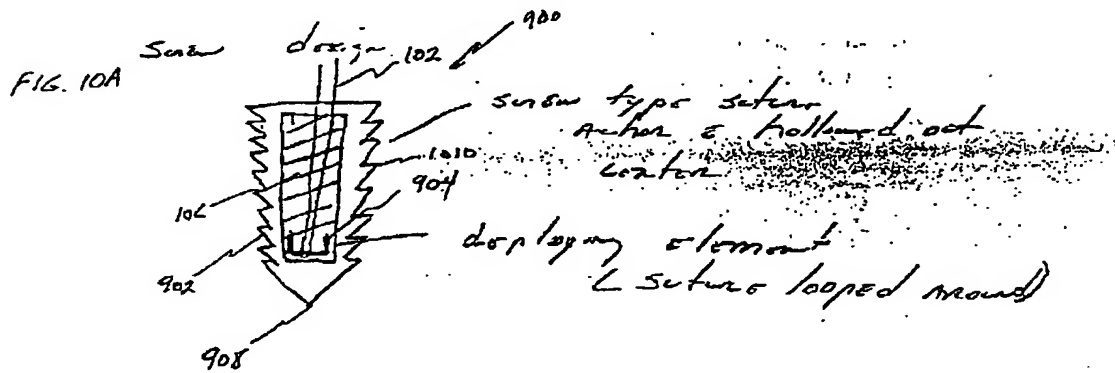 900
Screw design
102
FIG. 10A
screw type suture
Anchor c hollowed out
center
1010
904
106
deploying element
(suture looped around)
902
908